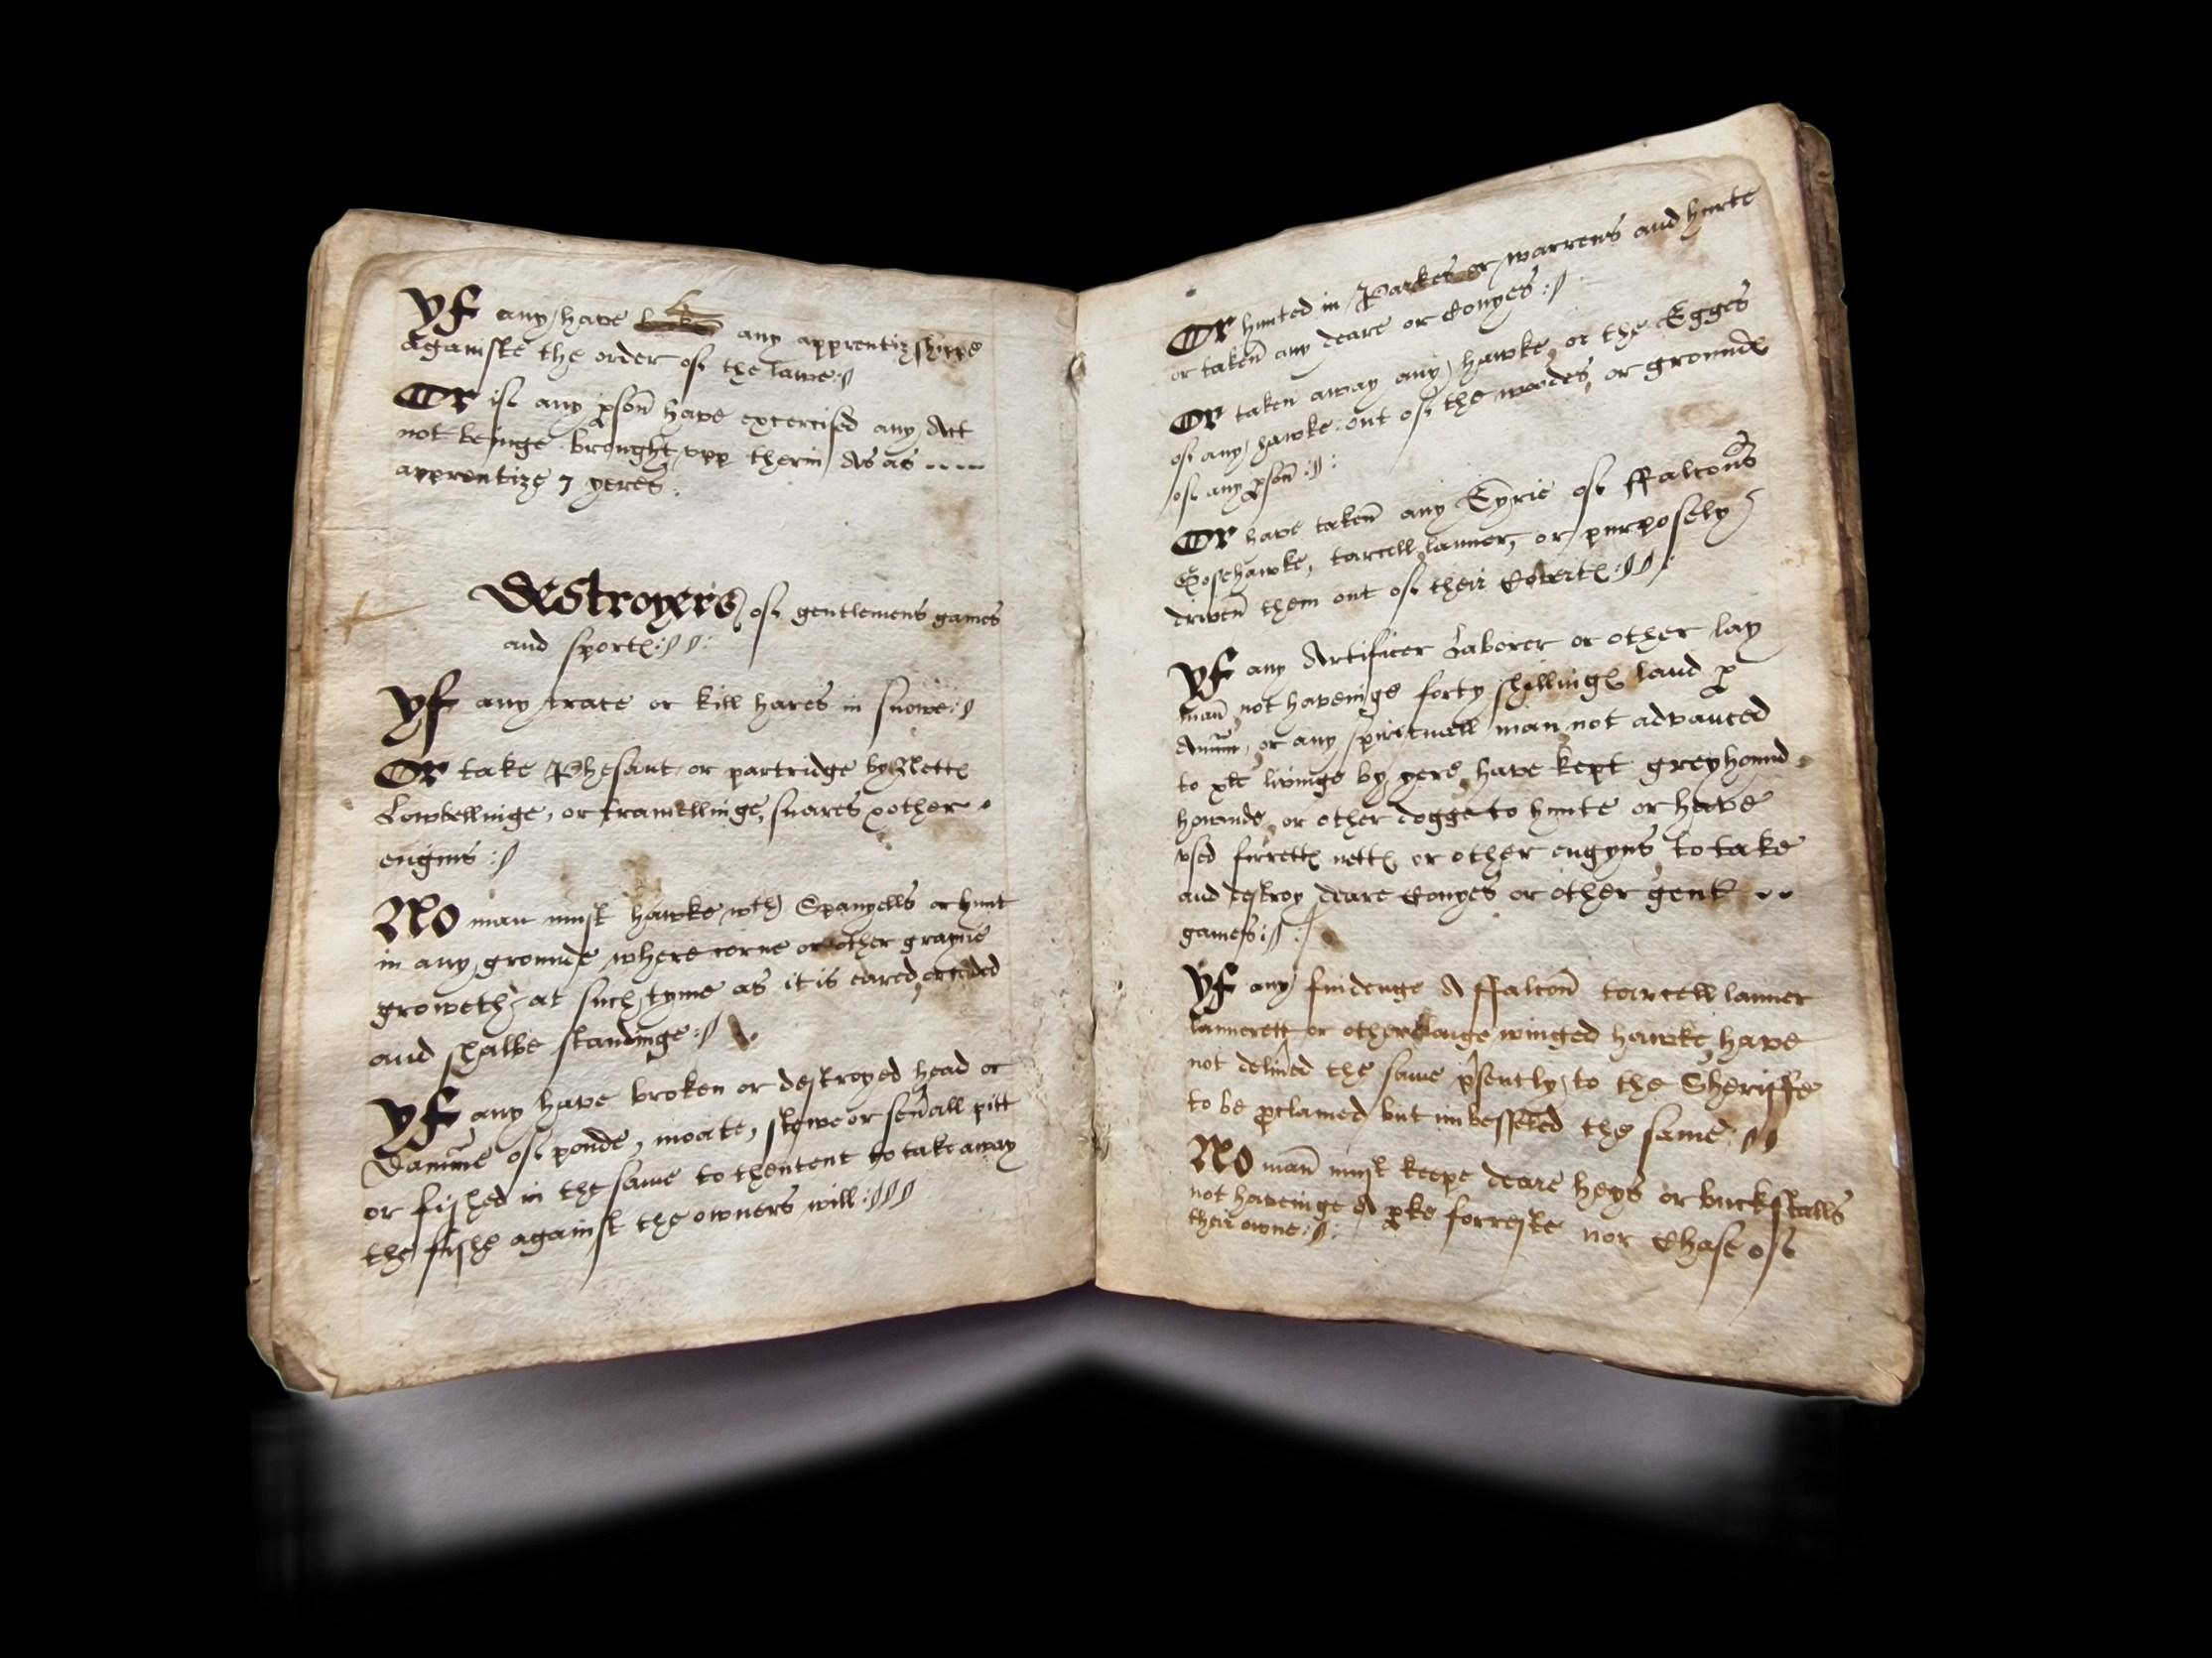 yf any have any apprentizshippe
againste the order of the lawe
Or if any pson have excercised any Art
not beinge brought vpp therin As as
apprentize 7 yeres.
Destroyers of gentlemens games
and sport
yf any trace or kill hares in snowe
Or take Phesant or partridge by Nett
Lowbellinge, or tramellinge, snares other
engins
No man must hawke wth Spanyells or hunt
in any grounde where corne or other grayne
groweth, at such tyme as it is eared or
and shalbe standinge
yf any have broken or destroyed head or
Damme of ponde, moate, stewe or seuall pitt
or fished in the same to thentent to take away
the fishe against the owners will
Or hunted in Parkes or warrens and hurte
or taken any deare or Conyes
Or taken away any hawke, or the Egges
of any hawke out of the woodes, or grounde
of any pson
Or have taken any Eyrie of ffalcons
Gosehawke, tarcell lanner, or purposely
driven them out of their Covert
yf any Artificer Laborer or other lay
man not haveinge forty shilling land p
Annum, or any spirituall man not advanced
to xli livinge by yere, have kept greyhound
hounde, or other dogge to hunte or have
vsed firrett nett or other engyns to take
and destroy deare Conyes or other gent
games
yf any findenge A ffalcon tarcell lanner
lannerett or other longe winged hawke, have
not delived the same psently to the Sheriffe
to be pclamed but imbesseled the same
No man must keepe deare heys or buckstalls
not haveinge A pke forreste nor Chase of
their owne